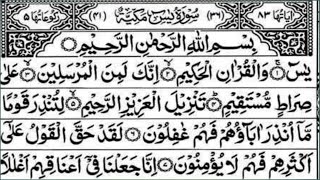 اٰیَاتُهَا ٨٣ (٣٦) سُوْرَةُ يٰسٓ مَكِّيَّةٌ (٤١) رُكُوْعَاتُهَا ٥
بِسْمِ اللّٰهِ الرَّحْمٰنِ الرَّحِيْمِ
يٰسٓ ۝ وَالْقُرْاٰنِ الْحَكِيْمِ ۝ اِنَّكَ لَمِنَ الْمُرْسَلِيْنَ ۝ عَلٰى
صِرَاطٍ مُّسْتَقِيْمٍ ۝ تَنْزِيْلَ الْعَزِيْزِ الرَّحِيْمِ ۝ لِتُنْذِرَ قَوْمًا
مَّاۤ اُنْذِرَ اٰبَآؤُهُمْ فَهُمْ غٰفِلُوْنَ ۝ لَقَدْ حَقَّ الْقَوْلُ عَلٰۤى
اَكْثَرِهِمْ فَهُمْ لَا يُؤْمِنُوْنَ ۝ اِنَّا جَعَلْنَا فِيْۤ اَعْنَاقِهِمْ اَغْلٰلًا